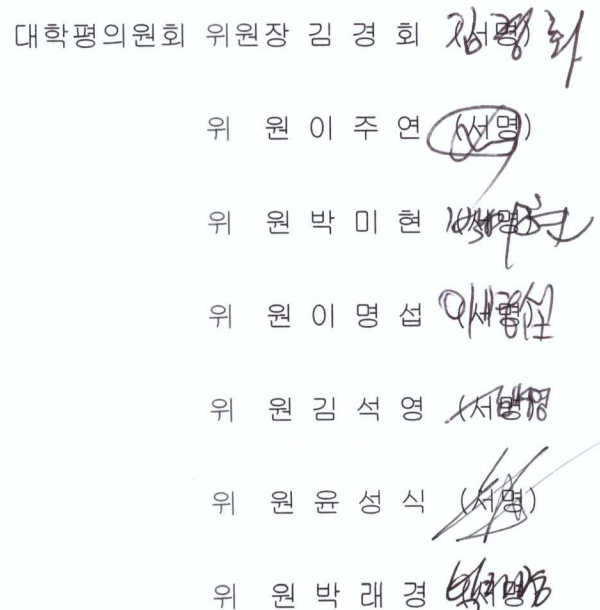 대학평의원회 위원장 김 경 회 (서명)
위 원 이 주 연 (서명)
위 원 박 미 현 (서명)
위 원 이 명 섭 (서명)
위 원 김 석 영 (서명)
위 원 윤 성 식 (서명)
위 원 박 래 경 (서명)